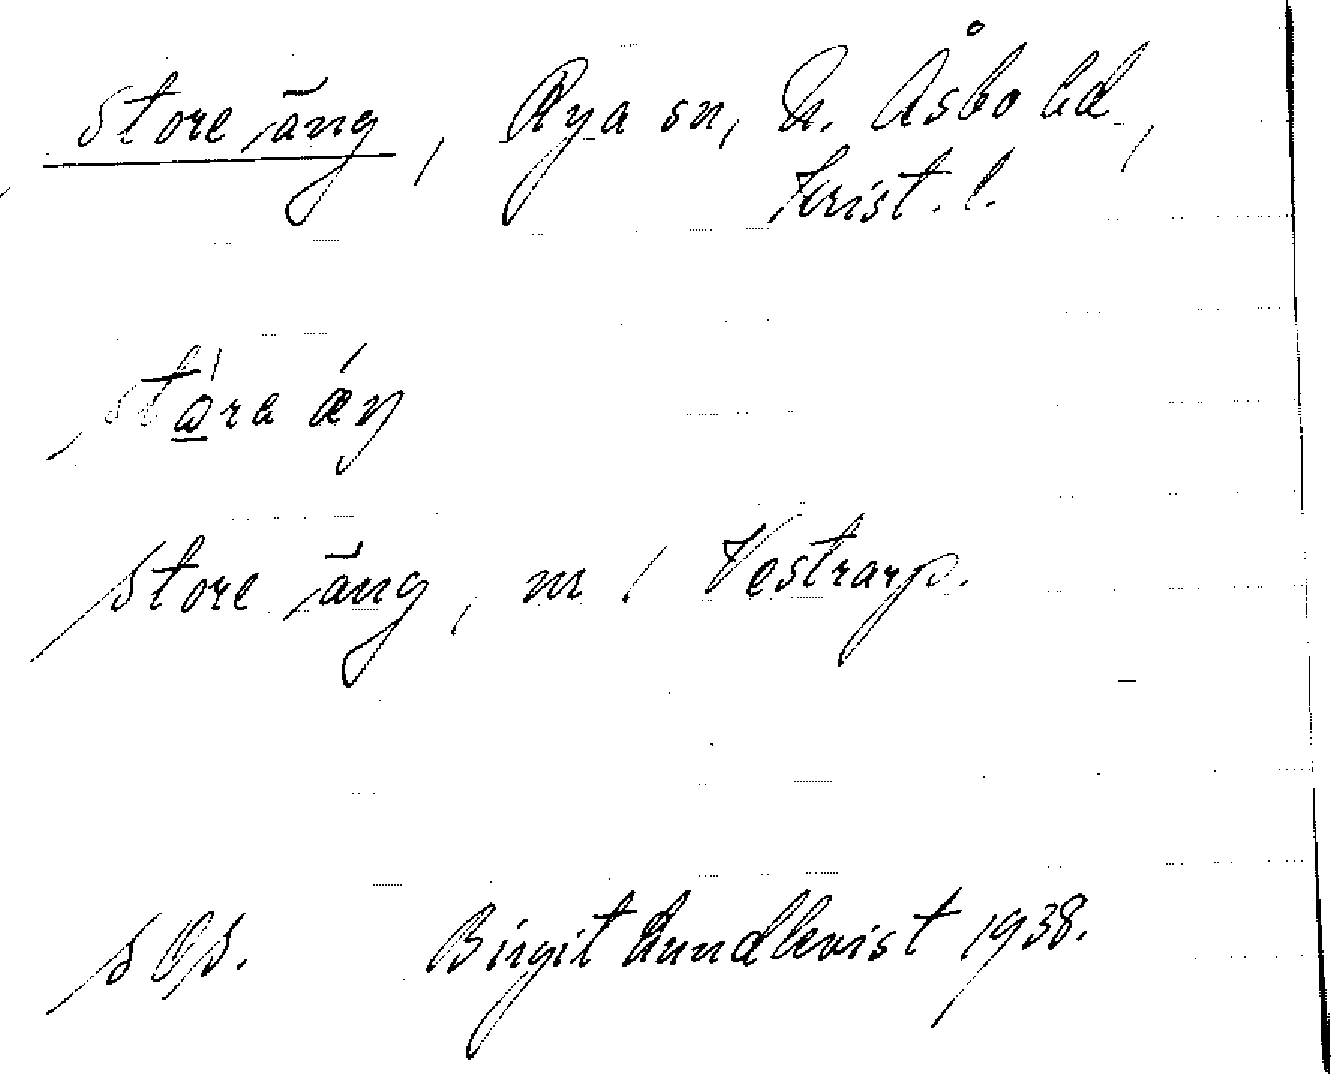 Store äng, Rya sn, N. Åsbo hd,
Krist. l.
Store äng, m / Vestrarp.
Birgit Lundkvist 1938.